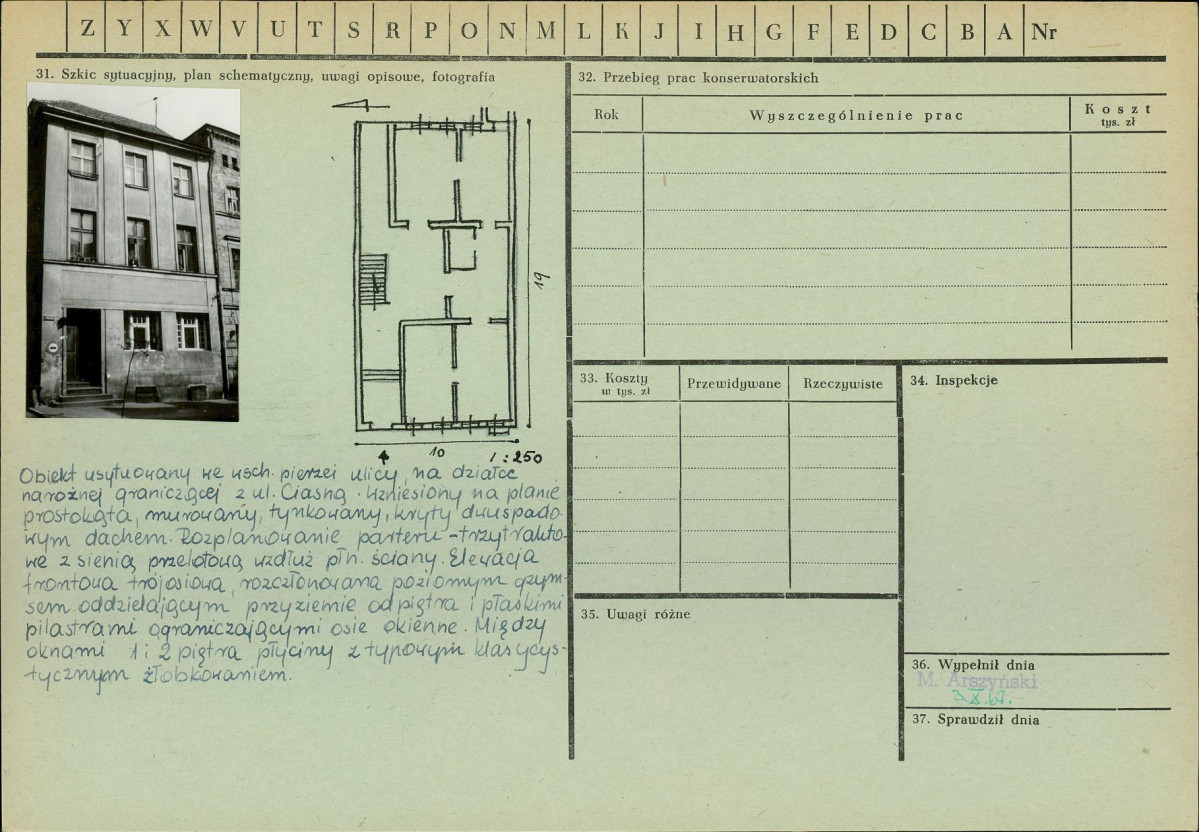 Z Y X W V U T S R P O N M L K J I H G F E D C B A Nr
31. Szkic sytuacyjny, plan schematyczny, uwagi opisowe, fotografia
19
10
1:250
Obiekt usytuowany we wsch. pierzei ulicy, na działce
narożnej graniczącej z ul. Ciasną. Wzniesiony na planie
prostokąta, murowany, tynkowany, kryty dwuspado-
wym dachem. Rozplanowanie parteru - trzytrakto-
we z sienią przelotową wzdłuż płn. ściany. Elewacja
frontowa trójosiowa, rozczłonowana poziomym gzym-
sem oddzielającym przyziemie od piętra i płaskimi
pilastrami ograniczającymi osie okienne. Między
oknami 1 i 2 piętra płyciny z typowym klasycys-
tycznym żłobkowaniem.
32. Przebieg prac konserwatorskich
Rok
Wyszczególnienie prac
Koszt
tys. zł
33. Koszty
w tys. zł
Przewidywane
Rzeczywiste
34. Inspekcje
35. Uwagi różne
36. Wypełnił dnia
M. Arszyński
37. Sprawdził dnia